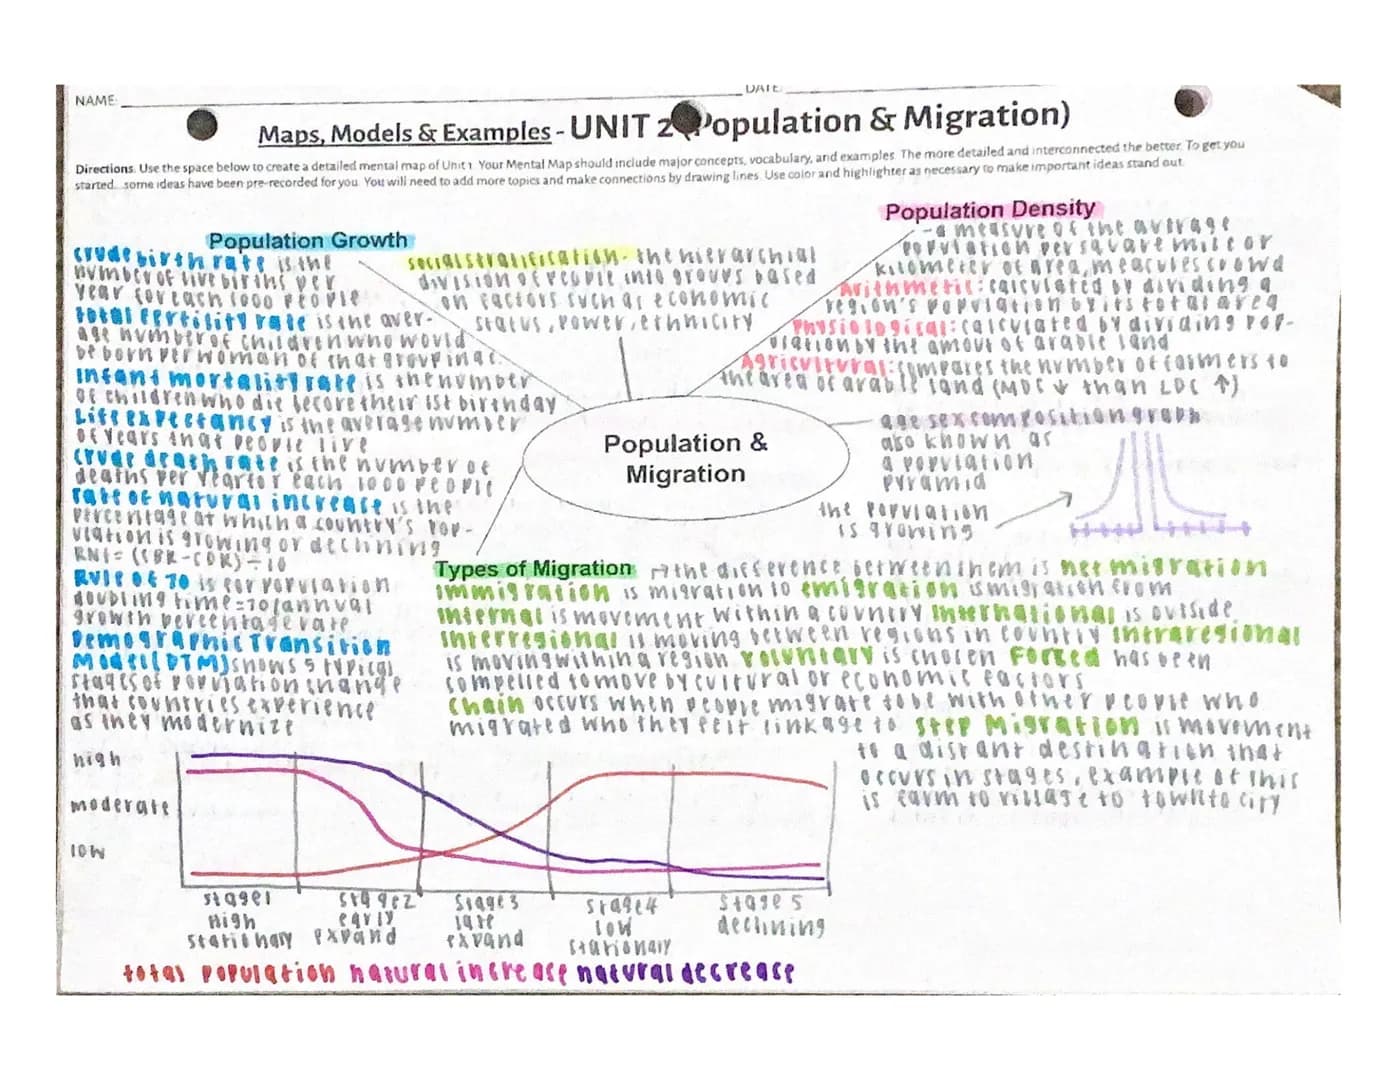 NAME:
DATE:
Maps, Models & Examples - UNIT 2 (Population & Migration)
Directions. Use the space below to create a detailed mental map of Unit 1 Your Mental Map should include major concepts, vocabulary, and examples The more detailed and interconnected the better. To get you
started...some ideas have been pre-recorded for you. You will need to add more topics and make connections by drawing lines. Use color and highlighter as necessary to make important ideas stand out.
Population Growth
crude birth rate is the
number of live births per
year for each 1000 people
total fertility rate is the aver-
age number of children who would
be born per woman of that group in a c.
infant mortality rate is the number
of children who die before their 1st birthday
Life expectancy is the average number
of years that people live
crude death rate is the number of
deaths per year for each 1000 people
rate of natural increase is the
percentage at which a country's pop-
ulation is growing or declining
RNI = (CBR-CDR) ÷ 10
Rule of 70 is for population
doubling time = 70/annual
growth percentage rate
Demographic Transition
Model (DTM) shows 5 typical
stages of population change
that countries experience
as they modernize
social stratification - the hierarchial
division of people into groups based
on factors such as economic
status, power, ethnicity
Population Density
- a measure of the average
population per square mile or
kilometer of area, measures crowd
Arithmetic: calculated by dividing a
region's population by its total area
Physiological: calculated by dividing pop-
ulation by the amout of arable land
Agricultural: compares the number of farmers to
the area of arable land (MDC ↓ than LDC ↑)
Population &
Migration
age sex composition graph
also known as
a population
pyramid
the population
is growing
Types of Migration → the difference between them is net migration
immigration is migration to emigration is migration from
internal is movement within a country international is outside
Interregional is moving between regions in country intraregional
is moving within a region voluntary is chosen Forced has been
compelled to move by cultural or economic factors
Chain occurs when people migrate to be with other people who
migrated who they felt linkage to Step Migration is movement
to a distant destination that
occurs in stages, example of this
is farm to village to town to city
high
moderate
low
stage 1
high
stationary
stage 2
early
expand
Stage 3
late
expand
stage 4
low
stationary
stage 5
declining
total population natural increase natural decrease